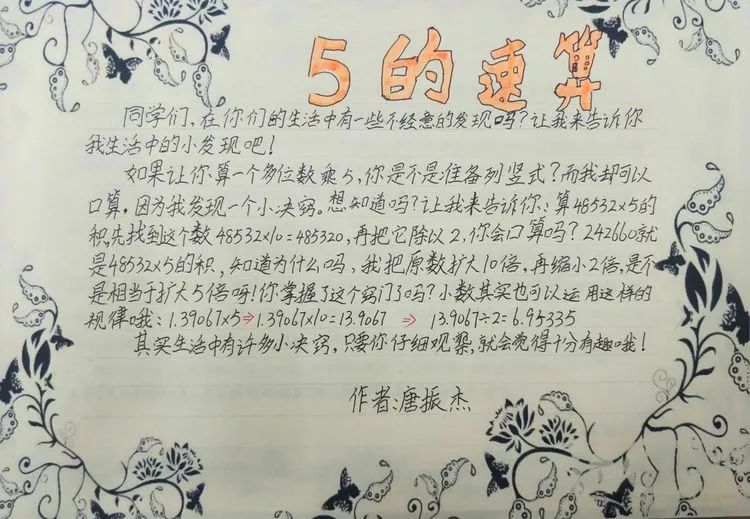 5的速算
同学们,在你们的生活中有一些不经意的发现吗?让我来告诉你
我生活中的小发现吧!
如果让你算一个多位数乘5,你是不是准备列竖式?而我却可以
口算,因为我发现一个小决窍。想知道吗?让我来告诉你:算48532×5的
积,先找到这个数48532×10=485320,再把它除以2,你会口算吗?242660就
是48532×5的积,知道为什么吗,我把原数扩大10倍,再缩小2倍,是不
是相当于扩大5倍呀!你掌握了这个窍门了吗?小数其实也可以运用这样的
规律哦:1.39067×5⇒1.39067×10=13.9067 ⇒ 13.9067÷2=6.95335
其实生活中有许多小决窍,只要你仔细观察,就会觉得十分有趣哦!
作者:唐振杰